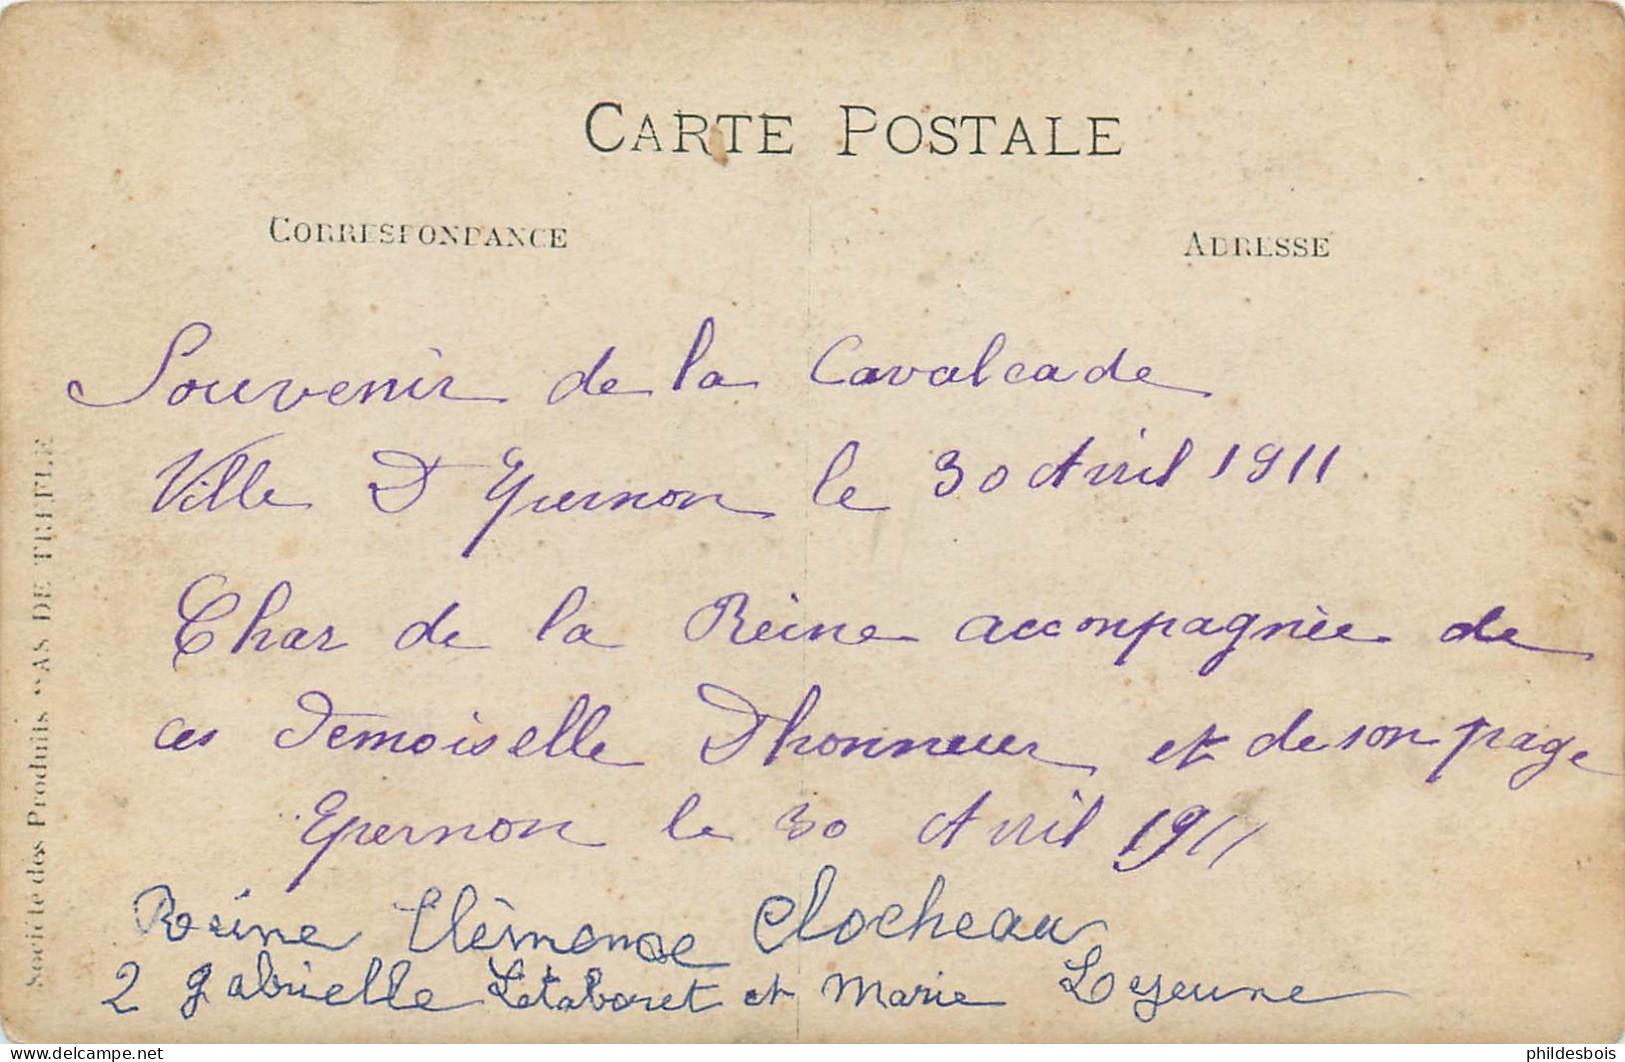 CARTE POSTALE
CORRESPONDANCE
ADRESSE
Souvenir de la Cavalcade
Ville D'Epernon le 30 Avril 1911
Char de la Reine accompagnée de
ces Demoiselle D'honneur et de son page
Epernon le 30 Avril 1911
Reine Clémence Clocheau
2 gabrielle Letaboret et Marie Lejeune
Société des Produits "AS DE TREFLE
https://www.delcampe.net
phildesbois